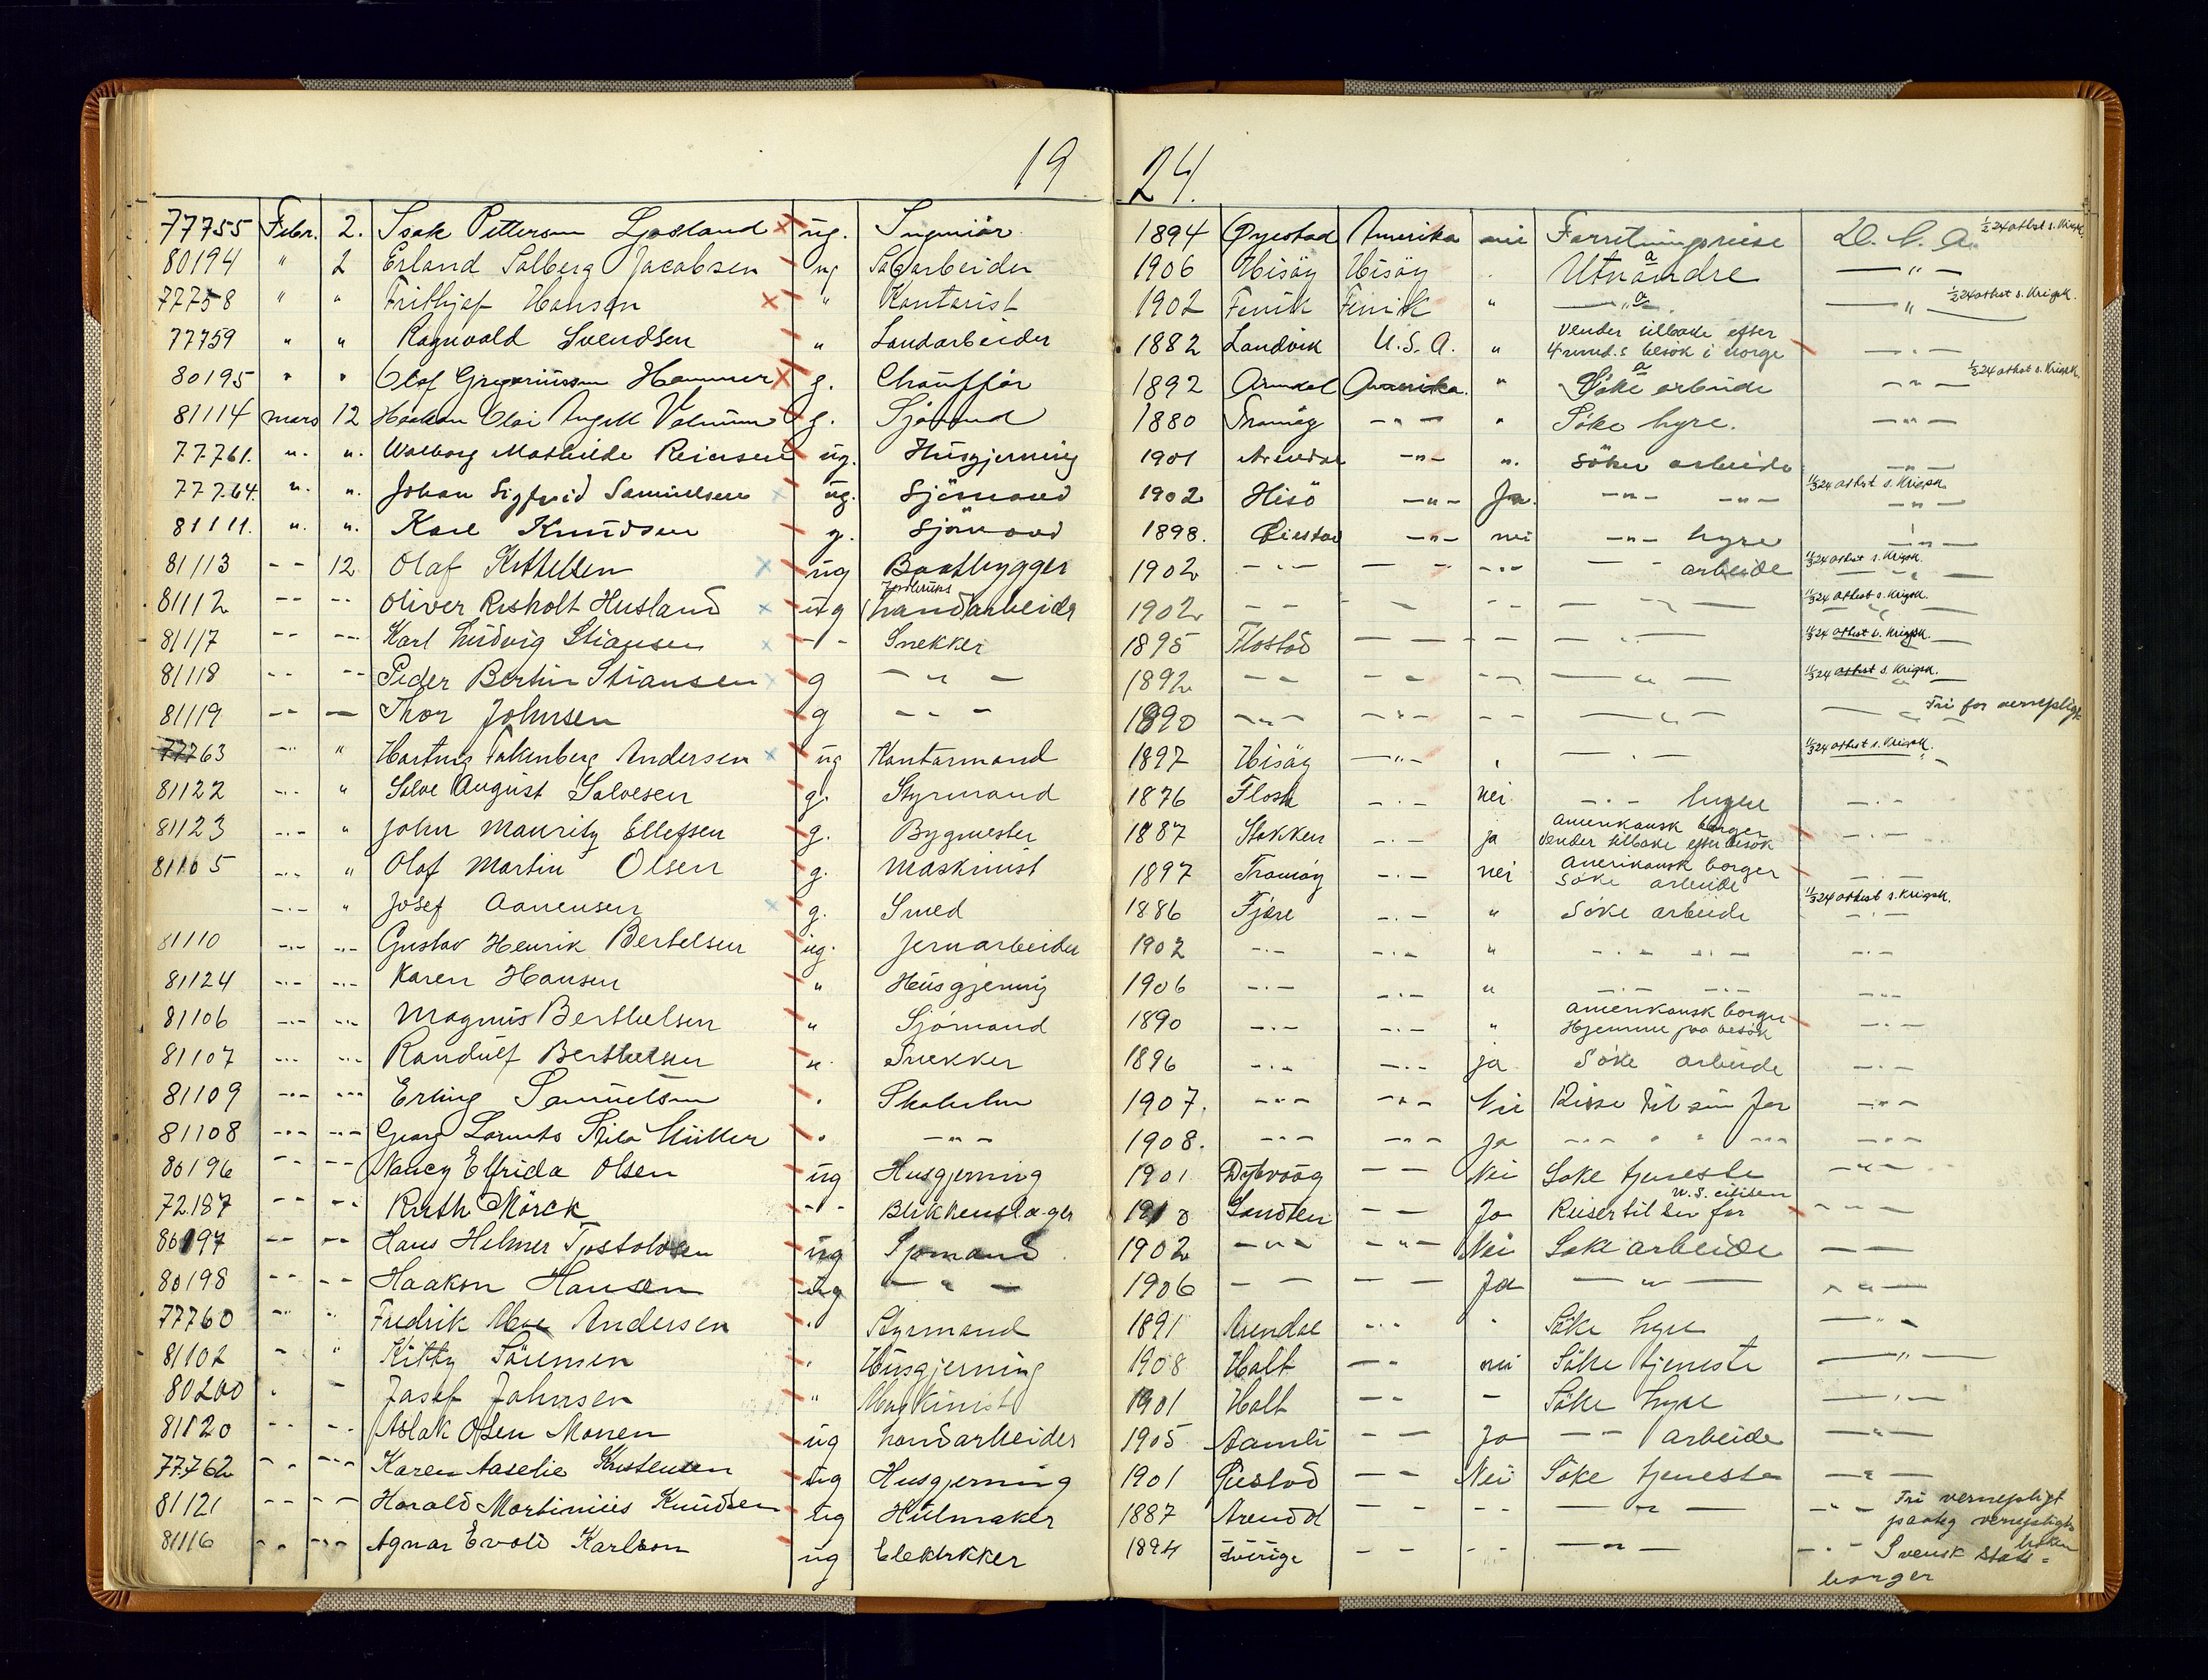 19 24.
77755 Febr. 2. Isak Pettersen Ljosland x ug. Ingeniör 1894 Øyestad Amerika nei Forretningsreise U.S.A. 1/2 24 attest s. Krigsk.
80194 " 2 Erland Solberg Jacobsen ug Sagarbeider 1906 Hisöy Hisöy . Utvandre — " —
77758 " " Frithjof Hansen x " Kontorist 1902 Fevik Fevik " — " — — " — 1/2 24 attest s. Krigsk.
77759 " " Ragnvald Svendsen " Landarbeider 1882 Landvik U.S.A. " Vender tilbake efter 4 mnd.s besök i Norge — " —
80195 " " Olaf Gregoriussen Hammer x g. Chaufför 1892 Arendal Amerika. " Söke arbeide — " — 1/2 24 attest s. Krigsk.
81114 mars 12 Haakon Olai g. Sjömand 1880 Tromöy — " — " Söke hyre. — " —
77761. ". ". Walborg Mathilde Reiersen ug. Husgjerning 1901 Arendal — " — ". Söker arbeide — " —
77764. ". ". Johan Sigfrid Samuelsen x ug. Sjömand 1902 Hisö — " — Ja. — " — — " — 11/3 24 attest s. Krigsk. — " —
81111. ". ". Karl Knudsen g. Sjömand 1898. Öiestad — " — nei — " — hyre — " —
81113 - - 12 Olaf Kittelsen x ug Baatbygger 1902 - - - - - - - arbeide 11/3 24 attest s. Krigsk.
81112 - - - - Oliver Risholt Husland x ug Jordbruks handarbeider 1902 - - - - - - — " — 11/3 24 attest s. Krigsk.
81117 - - - - Karl Ludvig Stiansen x - " - Snekker 1895 Flostad - - - - — " — 11/3 24 attest s. Krigsk.
81118 - - - - Peder Bertin Stiansen x g — " — 1892 - - - - - - — " — 11/3 24 attest s. Krigsk.
81119 - - — Thor Johnsen g - - - 1890 - " - - " - - - — " — Fri for vernepligt
77763 - " " Hartvig Falkenberg Andersen x ug Kontormand 1897 Hisöy — " — , — . — 11/3 24 attest s. Krigsk.
81122 - . - " Salve August Salvesen g. Styrmand 1876 Flosta - . - nei - . - hyre - . -
81123 - . - " John Mauritz Ellefsen g. Bygmester 1887 Stokken - . - ja amerikansk borger vender tilbake efter besök - . -
81105 - . - " Olaf Martin Olsen g. Maskinist 1897 Tromöy - . - nei amerikansk borger söke arbeide - . -
- . - " Josef Aanensen x g. Smed 1886 Fjære - . - " Söke arbeide 11/3 24 attest s. Krigsk. - . -
81110 - . - - . - Gustav Henrik Bertelsen ug. Jernarbeider 1902 - . - - . - " - . - - . - - . -
81124 - . - - . - Karen Hansen " Husgjerning 1906 - . - - . - " - . - - . - - . -
81106 - . - - . - Magnus Berthelsen " Sjömand 1890 - . - - . - " amerikansk borger Hjemme paa besök - . -
81107 - . - - . - Randulf Berthelsen ". Snekker 1896 - . - - . - ja Söke arbeide - . -
81109 - . - - . - Erling Samuelsen . Skoleelev 1907. - " - - " - Nei Reise til sin far - " -
81108 - . - - . - Georg Müller . - " - 1908. - " - - " - Ja - " - " " - " - - " -
80196 - - - - Nancy Elfrida Olsen ug Husgjerning 1901 Dybvaag - - Nei Söke tjeneste - " -
72187 - - - - Ruth Mörck - " - Blikkenslager 1910 Landvik - - Ja Reiser til sin far U.S. citisen - - -
80197 - - - - Hans Helmer Tjostolvsen ug Sjömand 1902 - " - - " - Nei Söke arbeide - -
80198 - - - - Haakon Hansen ug — " — 1906 - - - - Ja — " — - " -
77760 - " " Fredrik Moe Andersen . Styrmand 1891 Arendal - " - " Söke hyre - " -
81102 - " Kitty Sörensen . Husgjerning 1908 Holt - " - nei Söke tjeneste — " —
80200 . - Josef Johnsen " Maskinist 1901 Holt - - - Söke hyre - " -
81120 - - - - Aslak Olsen Monen ug handarbeider 1905 Aamli - - Ja - - arbeide - " -
77762 - . - - Karen Aaselie Kristensen ug Husgjerning 1901 Öiestad - - Nei Söke tjeneste - " -
81121 - - - - Harald Martinius Knudsen ug Hulmaker 1887 Arendal - - - - — " — - " - Fri vernepligt paateg vernepligtsboken
81116 - - - - Agnar Evald Karlson ug Elektrikker 1894 Sverige - - - - — " — - " - Svensk statsborger